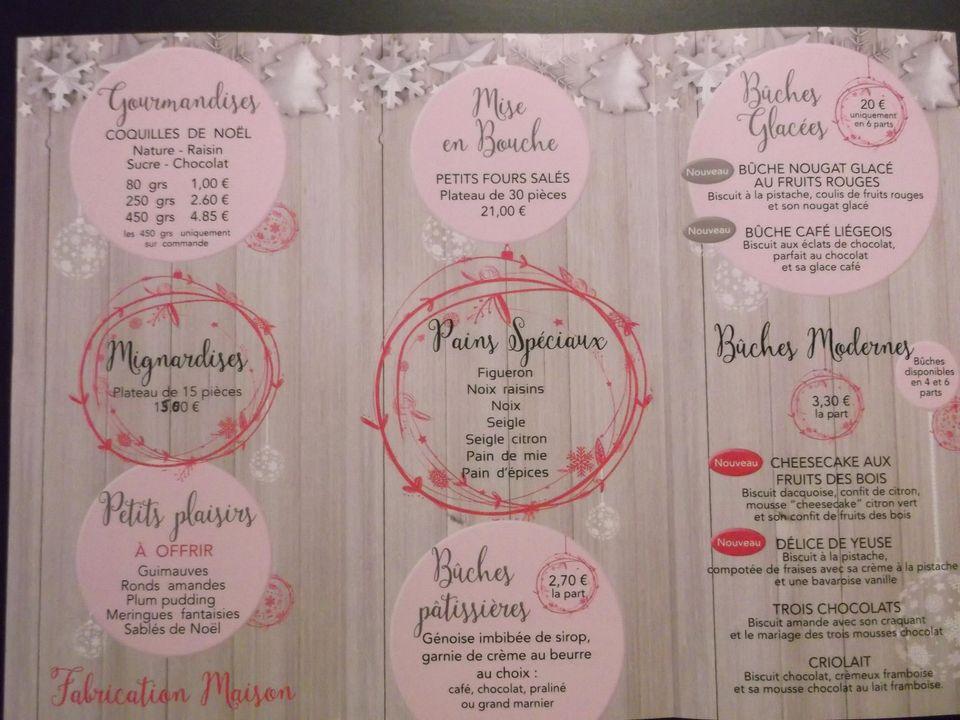 Gourmandises
COQUILLES DE NOËL
Nature - Raisin
Sucre - Chocolat
80 grs 1,00 €
250 grs 2.60 €
450 grs 4.85 €
les 450 grs uniquement
sur commande
Mignardises
Plateau de 15 pièces
€
Petits plaisirs
À OFFRIR
Guimauves
Ronds amandes
Plum pudding
Meringues fantaisies
Sablés de Noël
Fabrication Maison
Mise
en Bouche
PETITS FOURS SALÉS
Plateau de 30 pièces
21,00 €
Pains Spéciaux
Figueron
Noix raisins
Noix
Seigle
Seigle citron
Pain de mie
Pain d'épices
Bûches
pâtissières
2,70 €
la part
Génoise imbibée de sirop,
garnie de crème au beurre
au choix :
café, chocolat, praliné
ou grand marnier
Bûches
Glacées
20 €
uniquement
en 6 parts
Nouveau BÛCHE NOUGAT GLACÉ
AU FRUITS ROUGES
Biscuit à la pistache, coulis de fruits rouges
et son nougat glacé
Nouveau BÛCHE CAFÉ LIÉGEOIS
Biscuit aux éclats de chocolat,
parfait au chocolat
et sa glace café
Bûches Modernes
Bûches
disponibles
en 4 et 6
parts
3,30 €
la part
Nouveau CHEESECAKE AUX
FRUITS DES BOIS
Biscuit dacquoise, confit de citron,
mousse "cheesecake" citron vert
et son confit de fruits des bois
Nouveau DÉLICE DE YEUSE
Biscuit à la pistache,
compotée de fraises avec sa crème à la pistache
et une bavaroise vanille
TROIS CHOCOLATS
Biscuit amande avec son craquant
et le mariage des trois mousses chocolat
CRIOLAIT
Biscuit chocolat, crémeux framboise
et sa mousse chocolat au lait framboise.